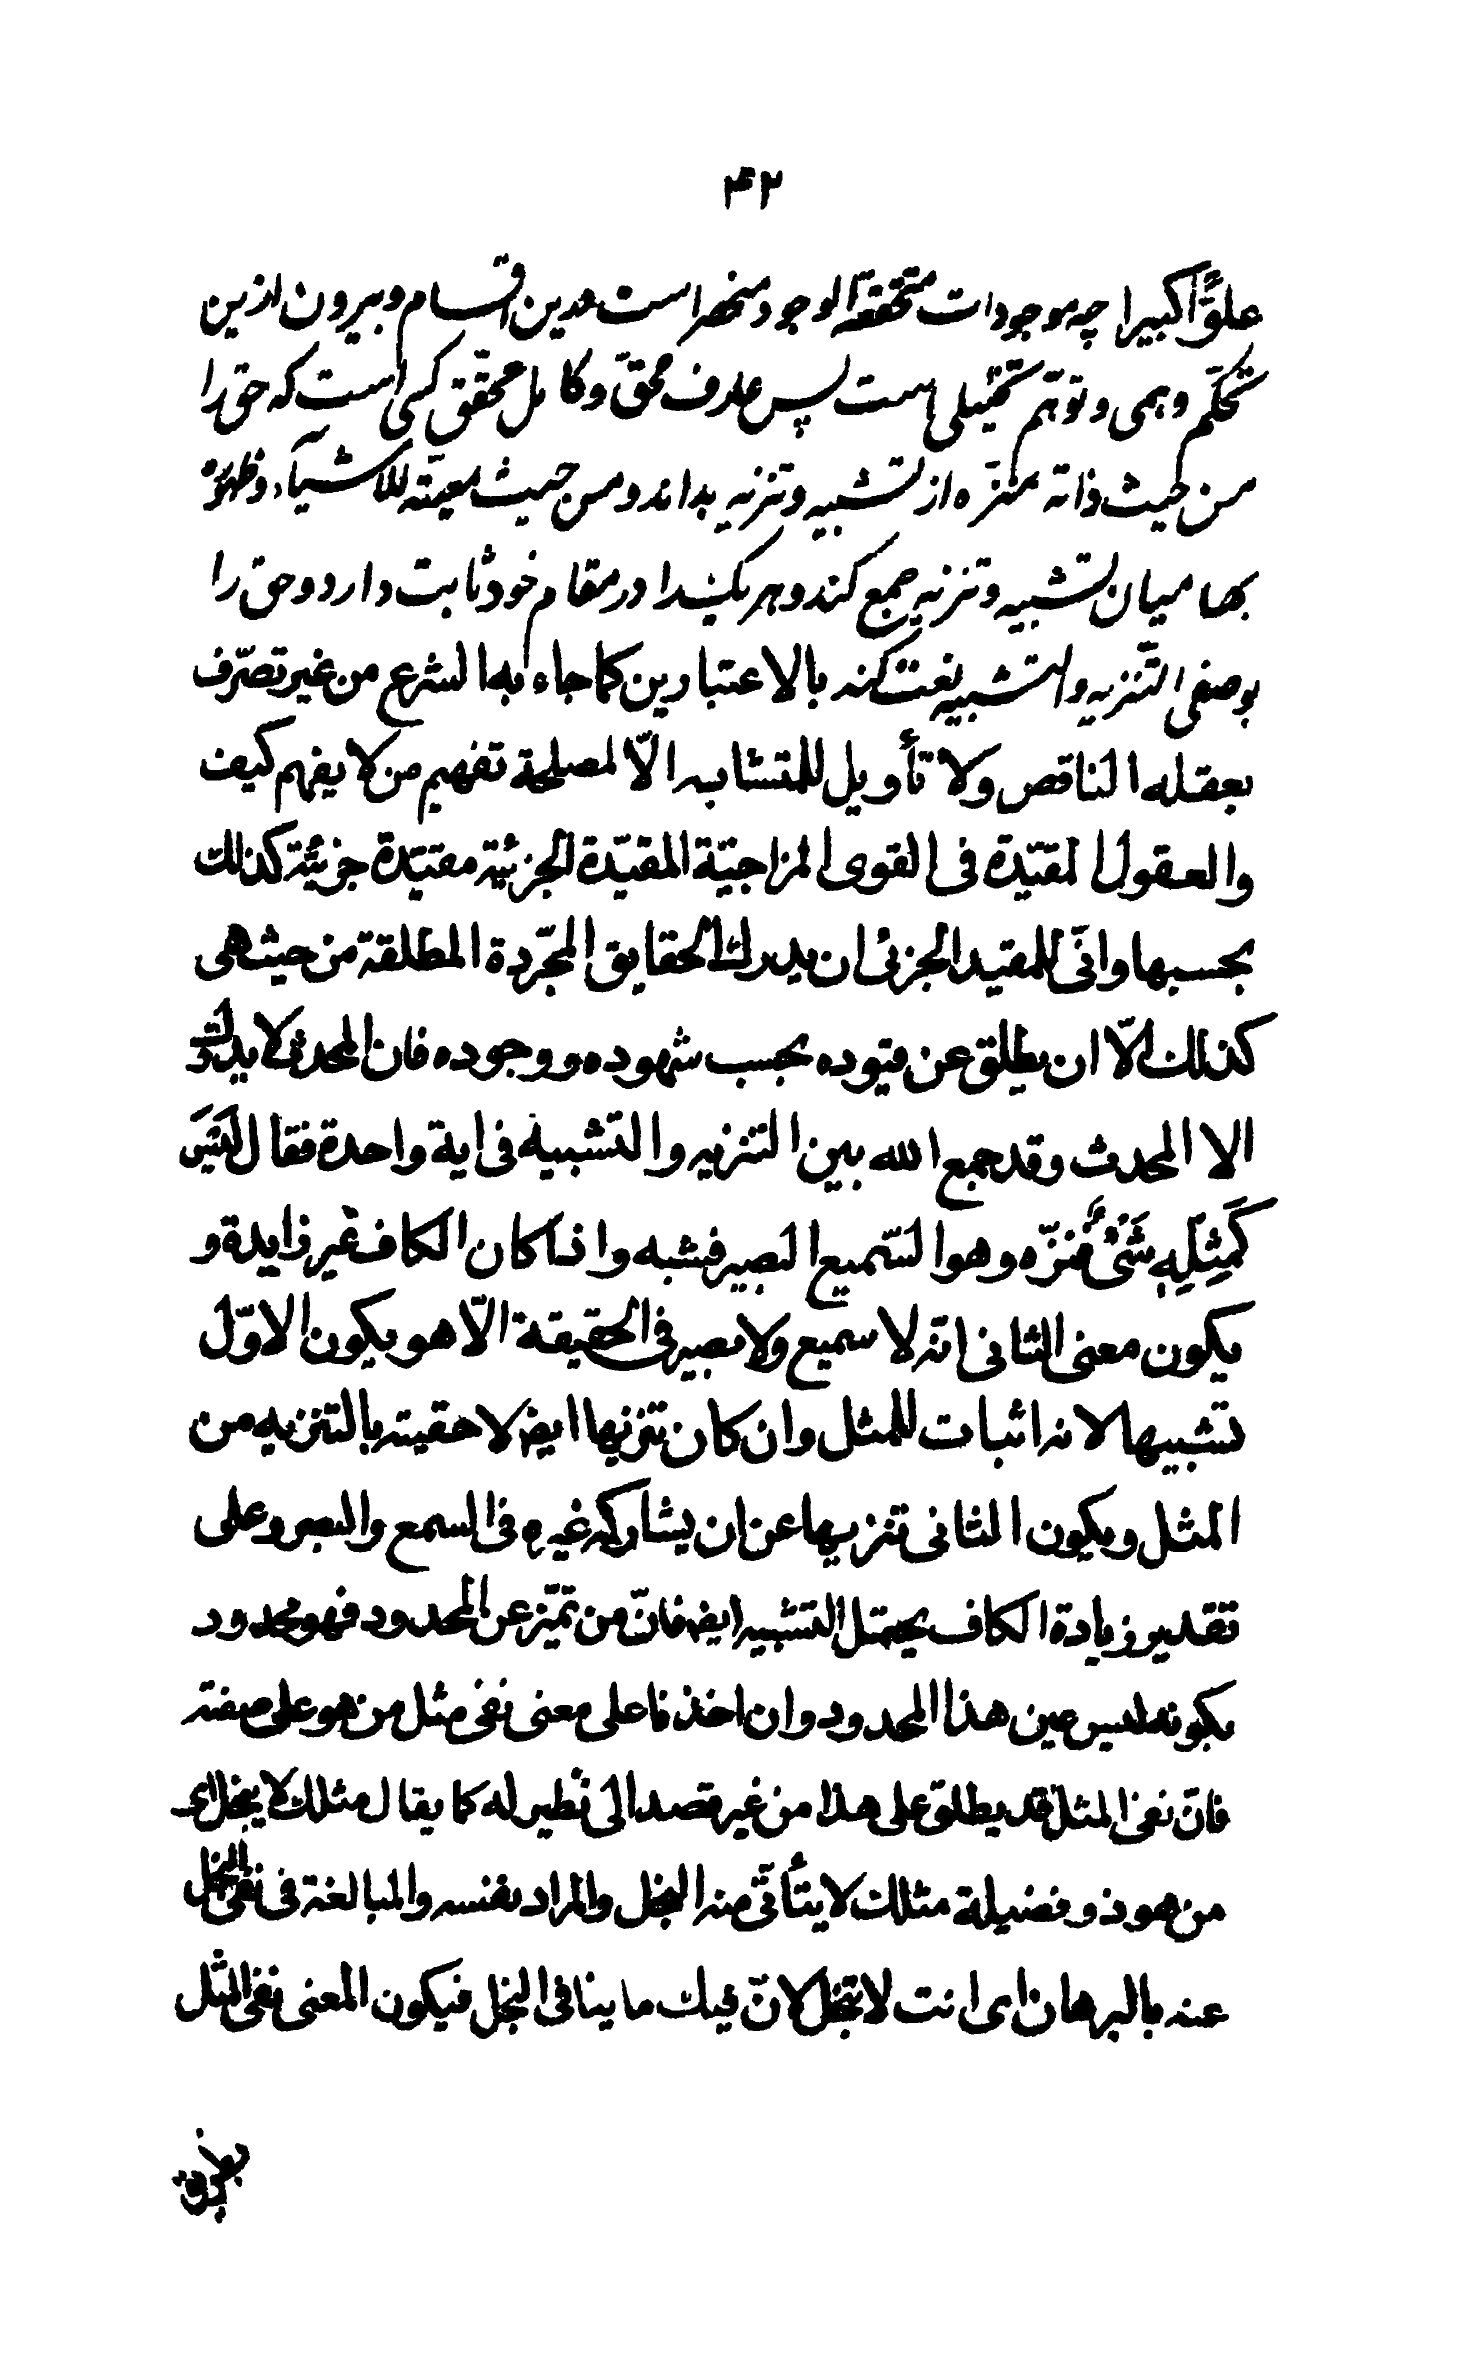 ۴۲
علوًّا کبیرا چه موجودات متحققة الوجود منحصر است بدین اقسام و بیرون ازین
تحکّم وهمی و توهّم تخیّلی است پس عارف محقّ و کامل محقّق کسی است که حق را
من حیث ذاته منزّه از تشبیه و تنزیه بداند و من حیث معیّته للاشیآء و ظهوره
بها میان تشبیه و تنزیه جمع کند و هر یک را در مقام خود ثابت دارد و حق را
بوصفی التّنزیه و التشبیه نعت کند بالاعتبارین کما جاء به الشرع من غیر تصرّف
بعقله الناقص ولا تأویل للمتشابه الّا لمصلحة تفهیم من لا یفهم کیف
والعقول المقیّدة فی القوی المزاجیّة المقیّدة الجزئیّة مقیّدة جزئیّة کذلك
بحسبها وانّی للمقید الجزئی ان یدرك الحقایق المجّردة المطلقة من حیث هی
کذلك الّا ان یطلق عن قیوده بحسب شهوده و وجوده فان المحدث لا یدرك
الا المحدث وقد جمع الله بین التنزیه والتشبیه فی ایة واحدة فقال لَیْسَ
کَمِثْلِهِ شَیْءٌ فنزّه وهو السّمیع البصیر فشبه واذا کان الکاف غیر زایدة و
یکون معنی الثانی انّه لا سمیع ولا بصیر فی الحقیقة الّا هو یکون الاوّل
تشبیها لانه اثبات للمثل وان کان تنزیها ایض لاحقیته بالتنزیه من
المثل ویکون الثانی تنزیها عن ان یشارکه غیره فی السمع والبصر وعلی
تقدیر زیادة الکاف یحتمل التشبیه ایض فانّ من تمیّز عن المحدود فهو محدود
بکونه لیس عین هذا المحدود وان اخذنا علی معنی نفی مثل من هو علی صفته
فانّ نفی المثل قد یطلق علی هذا من غیر قصد الی نظیر له کما یقال مثلك لا یبخل ای
من هو ذو فضیلة مثلك لا یتأتّی منه البخل والمراد نفسه والمبالغة فی نفی البخل
عنه بالبرهان ای انت لا تبخل لانّ فیك ما ینافی البخل فیکون المعنی نفی المثل